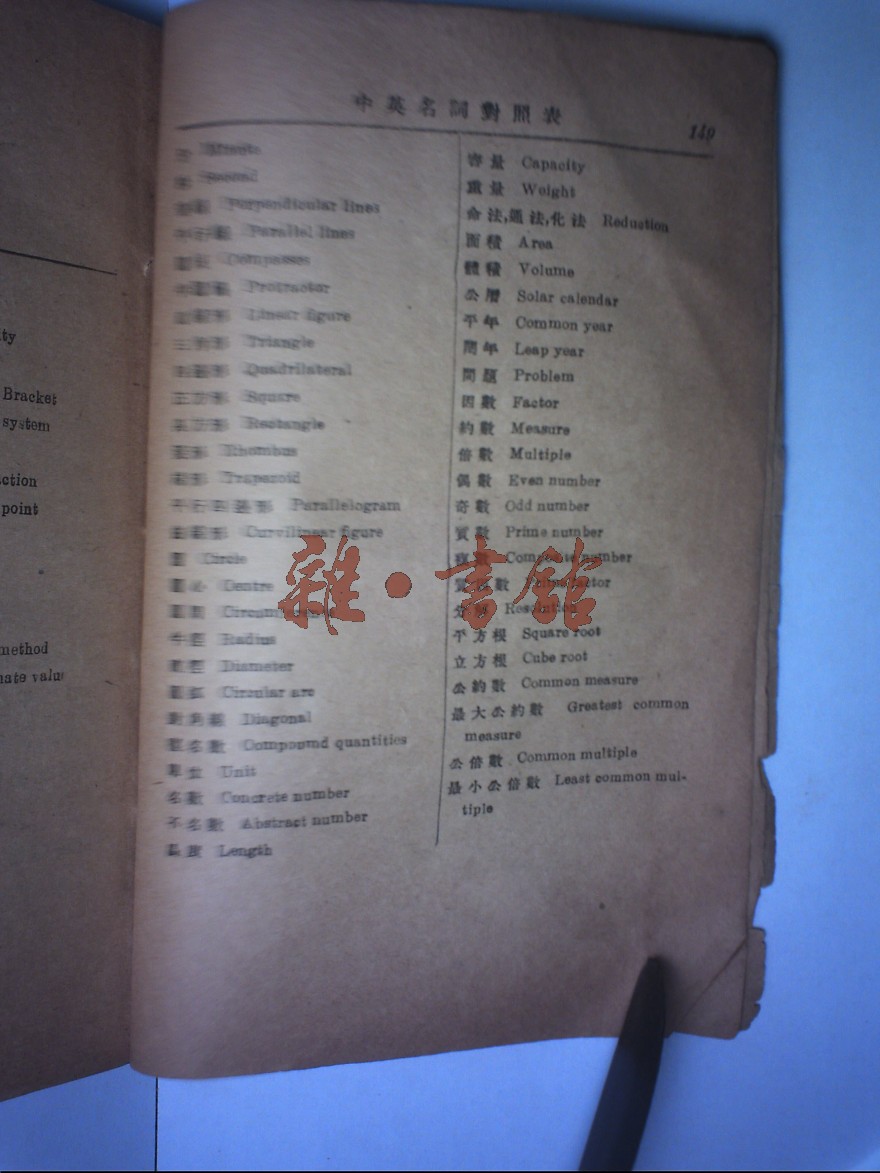 中英名詞對照表
149
Minute
Second
Perpendicular lines
Parallel lines
Compasses
Protractor
Linear figure
Triangle
Quadrilateral
正方形 Square
Rectangle
Rhombus
Trapezoid
平行四邊形 Parallelogram
Curvilinear figure
Circle
圓心 Centre
圓周 Circumference
半徑 Radius
直徑 Diameter
圓弧 Circular arc
對角線 Diagonal
複名數 Compound quantities
單位 Unit
名數 Concrete number
不名數 Abstract number
長度 Length
容量 Capacity
重量 Weight
命法,通法,化法 Reduction
面積 Area
體積 Volume
公曆 Solar calendar
平年 Common year
閏年 Leap year
問題 Problem
因數 Factor
約數 Measure
倍數 Multiple
偶數 Even number
奇數 Odd number
質數 Prime number
Composite number
質因數 Prime factor
Resolution
平方根 Square root
立方根 Cube root
公約數 Common measure
最大公約數 Greatest common
measure
公倍數 Common multiple
最小公倍數 Least common mul-
tiple
ty
Bracket
system
ction
point
method
nate value
雜·書館